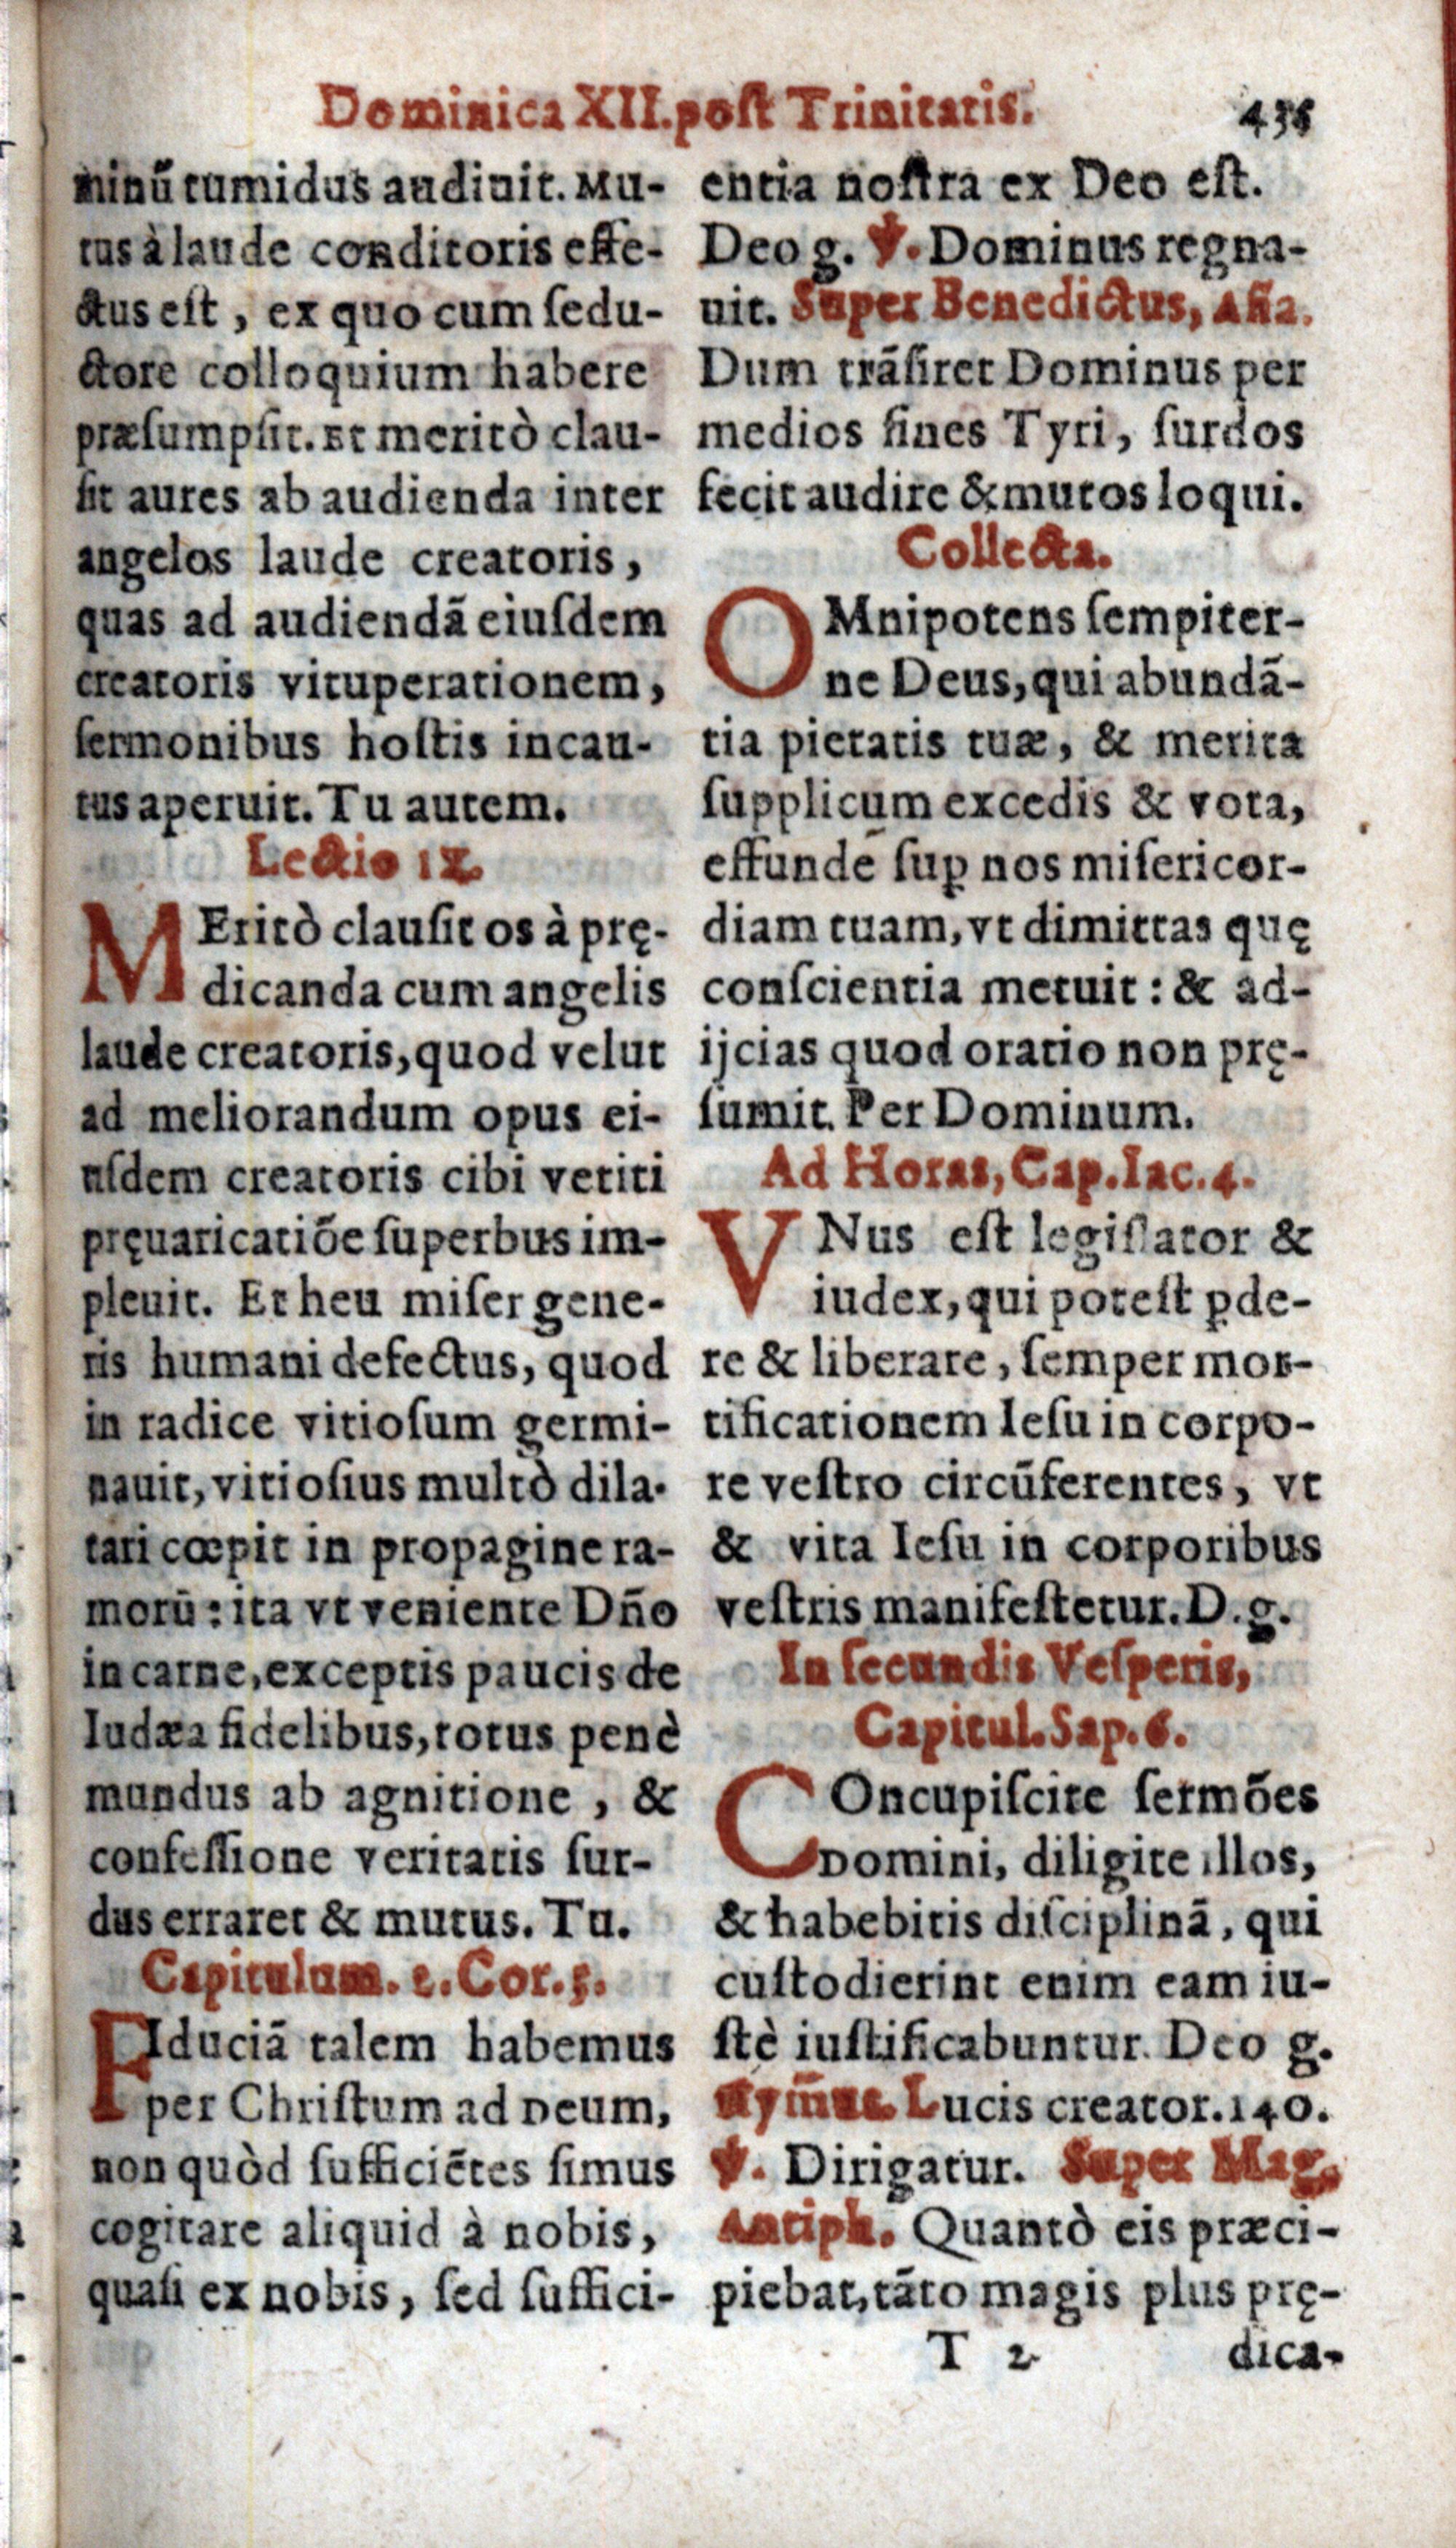 Dominica XII. post Trinitatis.
minũ tumidus audiuit. Mu-
tus à laude conditoris effe-
ctus est, ex quo cum ſedu-
ctore colloquium habere
præſumpſit. Et meritò clau-
ſit aures ab audienda inter
angelos laude creatoris,
quas ad audiendã eiuſdem
creatoris vituperationem,
ſermonibus hoſtis incau-
tus aperuit. Tu autem.
Lectio ix.
MEritò clauſit os à prę-
dicanda cum angelis
laude creatoris, quod velut
ad meliorandum opus ei-
uſdem creatoris cibi vetiti
pręuaricatiõe ſuperbus im-
pleuit. Et heu miſer gene-
ris humani defectus, quod
in radice vitioſum germi-
nauit, vitioſius multò dila-
tari cœpit in propagine ra-
morũ: ita vt veniente Dño
in carne, exceptis paucis de
Iudæa fidelibus, totus penè
mundus ab agnitione, &
confeſſione veritatis ſur-
dus erraret & mutus. Tu.
Capitulum. 2. Cor. 3.
FIduciã talem habemus
per Chriſtum ad Deum,
non quòd ſufficiẽtes ſimus
cogitare aliquid à nobis,
quaſi ex nobis, ſed ſuffici-
entia noſtra ex Deo eſt.
Deo g. ℣. Dominus regna-
uit. Super Benedictus, Añа.
Dum trãſiret Dominus per
medios fines Tyri, ſurdos
fecit audire & mutos loqui.
Collecta.
OMnipotens ſempiter-
ne Deus, qui abundã-
tia pietatis tuæ, & merita
ſupplicum excedis & vota,
effunde ſuꝑ nos miſericor-
diam tuam, vt dimittas quę
conſcientia metuit: & ad-
ijcias quod oratio non prę-
ſumit. Per Dominum.
Ad Horas, Cap. Iac. 4.
VNus eſt legiſlator &
iudex, qui poteſt ꝑde-
re & liberare, ſemper mor-
tificationem Ieſu in corpo-
re veſtro circũferentes, vt
& vita Ieſu in corporibus
veſtris manifeſtetur. D. g.
In ſecundis Veſperis,
Capitul. Sap. 6.
COncupiſcite ſermões
Domini, diligite illos,
& habebitis diſciplinã, qui
cuſtodierint enim eam iu-
ſtè iuſtificabuntur. Deo g.
Hym̃us. Lucis creator. 140.
℣. Dirigatur. Super Mag.
Antiph. Quantò eis præci-
piebat, tãto magis plus prę-
T 2
dica-